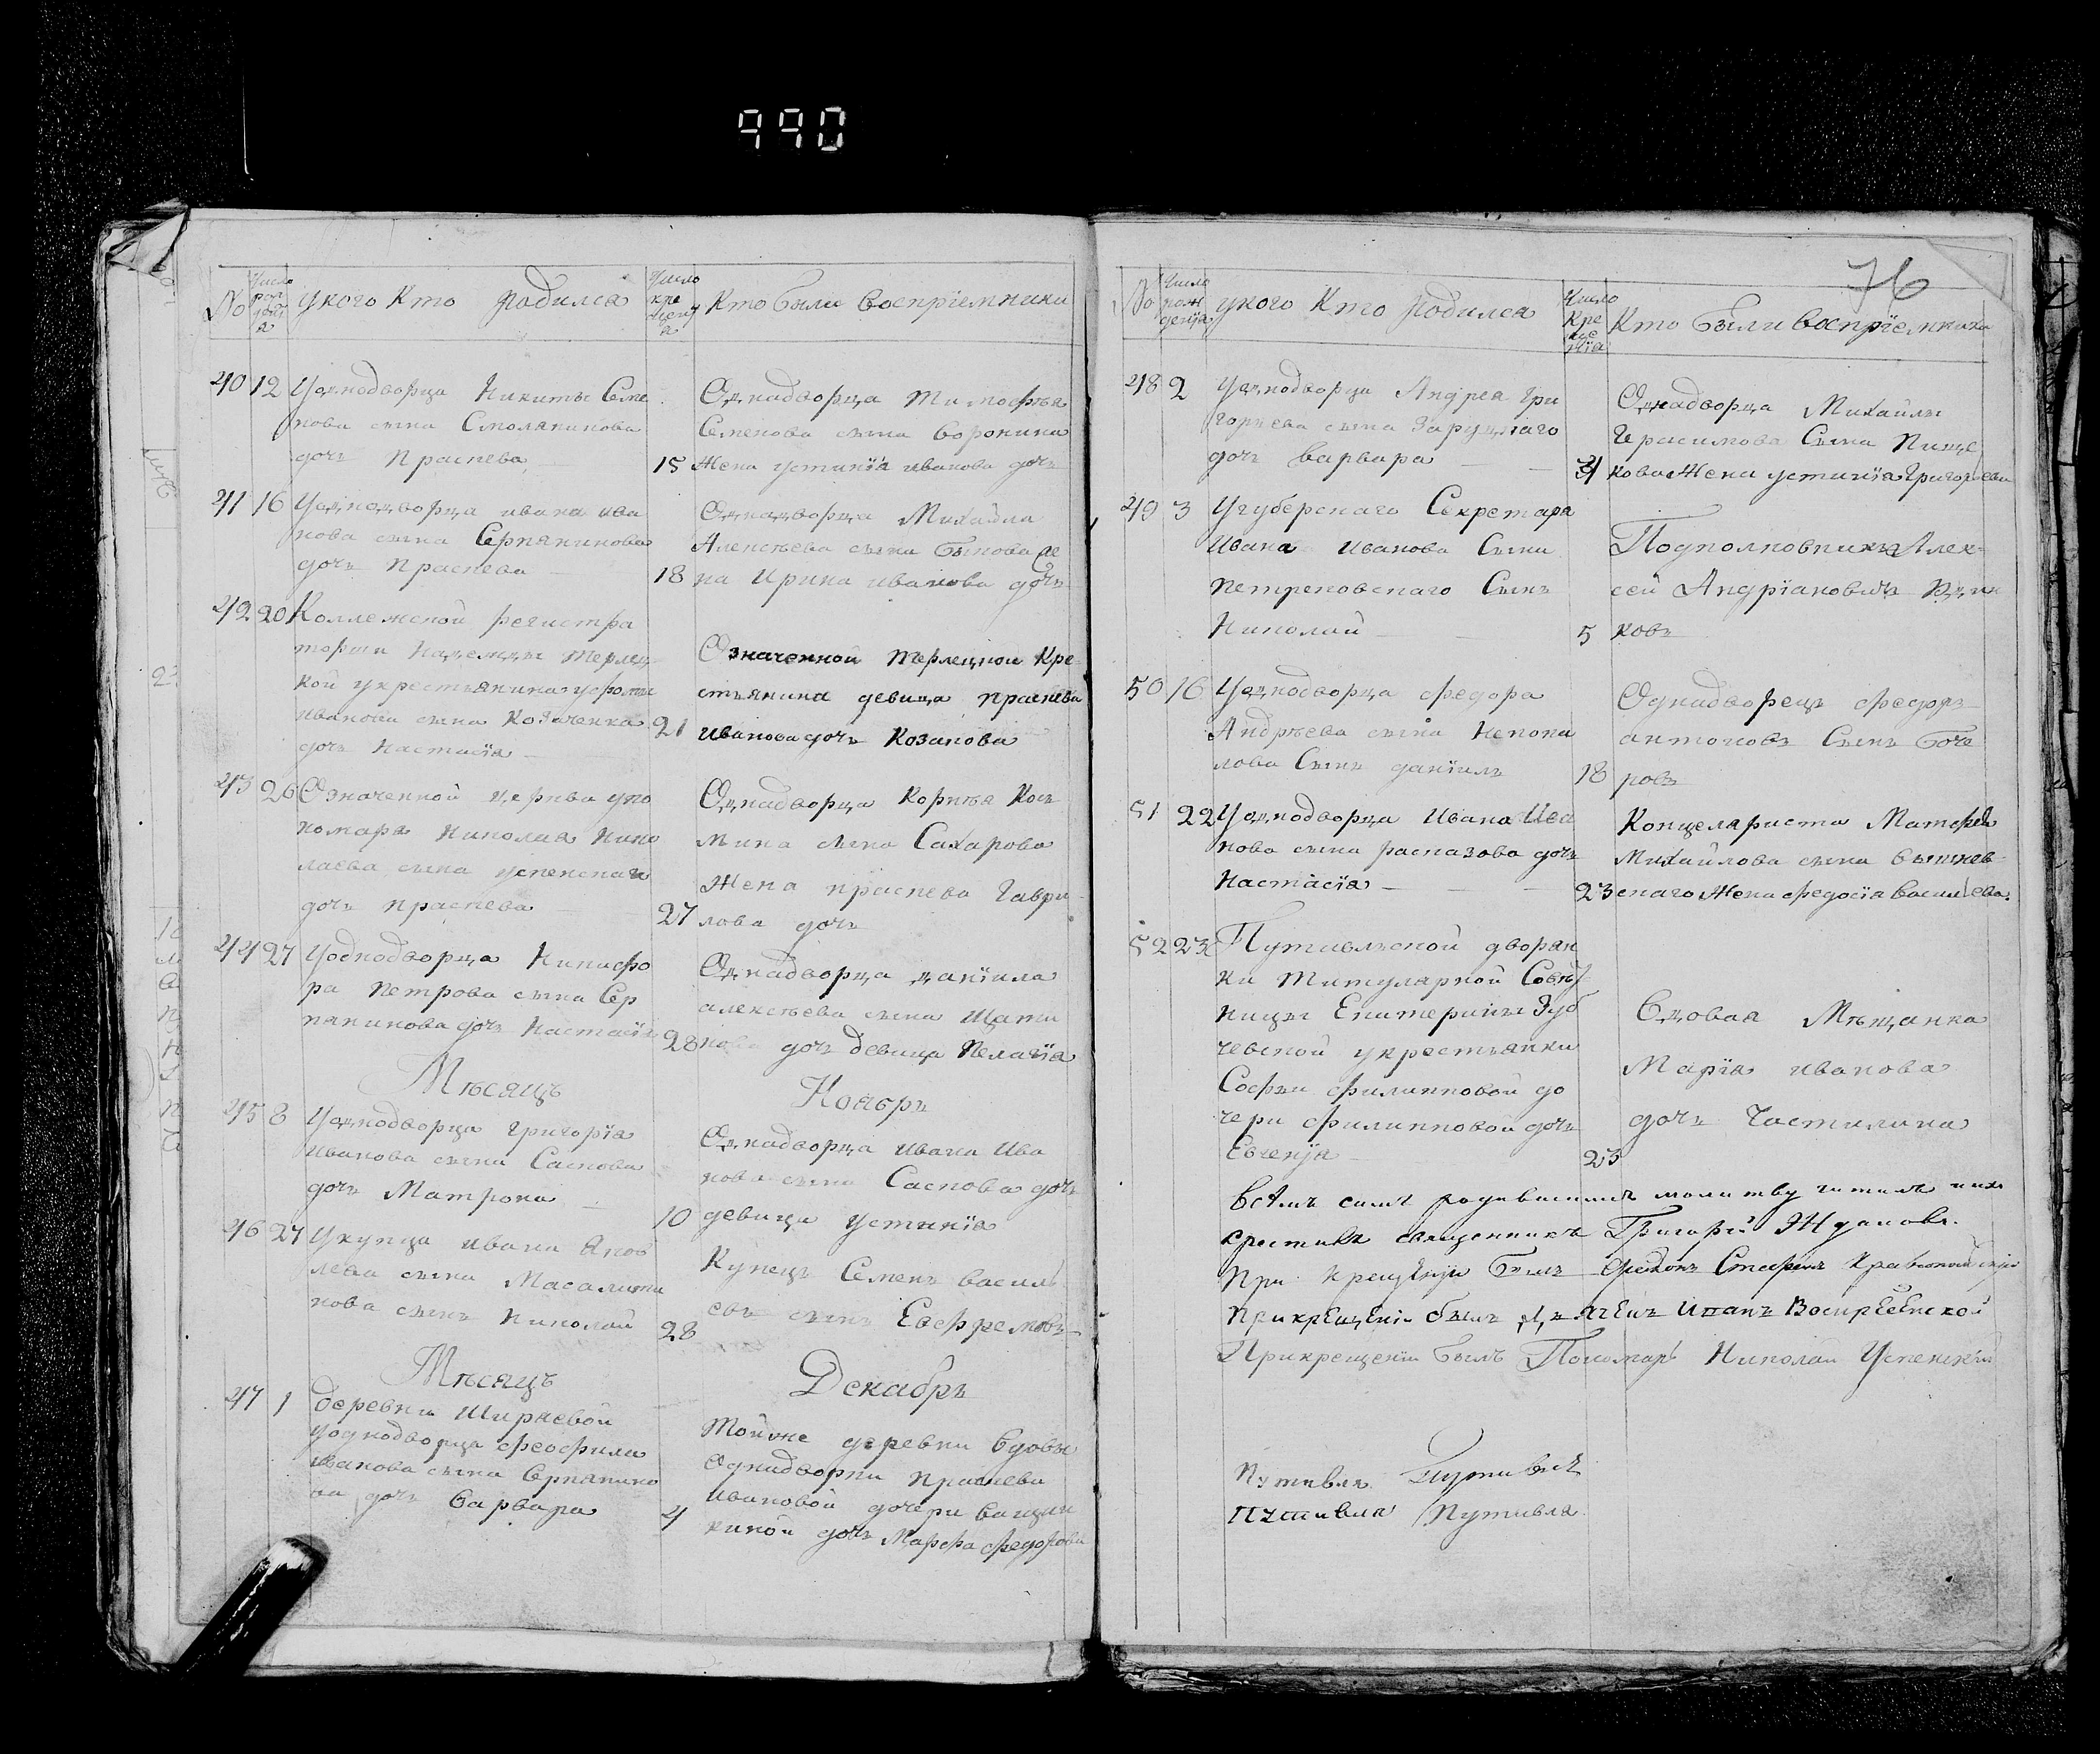 990
76
No
Число рождения
у кого кто родился
Число крещения
Кто были восприемники
40 12 У однодворца Никиты Семе
нова сына Смолянинова
дочь Праскева
15
Однадворца Тимофѣя
Семенова сына Воронина
жена Устинїя Иванова дочь
41 16 У однодворца Ивана Ива
нова сына Серпянинова
дочь Праскева
18
Однадворца Михайла
Алексѣева сына Быкова же
на Ирина Иванова дочь
42 20 Коллежской регистра
торши Надежды Терлец
кой у крестьянина
Иванова сына Козаченка
дочь Настасїя
21
Означенной Терлецкой кре
стьянина девица Праскева
Иванова дочь Козакова
43 26 Означенной церкви у по
номаря Николая Нико
лаева сына Успенскаго
дочь Праскева
27
Однадворца Корнѣя Козь
мина сына Сахарова
жена Праскева Гаври
лова дочь
44 27 У однодворца Никифо
ра Петрова сына Сер
пянинова дочь Настасїя
28
Однадворца Данїила
Алексѣева сына
дочь девица Пелагїя
Мѣсяцъ Ноябрь
45 8 У однодворца Григорїя
Иванова сына Саснова
дочь Матрона
10
Однадворца Ивана Ива
нова сына Саснова дочь
девица Устинїя
46 27 У купца Ивана Яков
лева сына Масалити
нова сынъ Николай
28
Купецъ Семенъ Василь
евъ сынъ Евфремовъ
Мѣсяцъ Декабрь
47 1 Деревни Ширяевой
у однодворца Феофила
Иванова сына Серпянино
ва дочь Варвара
4
Той же деревни вдовы
однадворки Праскевы
Ивановой дочери
дочь Марфа Федорова
No
Число рожденїя
у кого кто родился
Число крещенїя
Кто были восприемники
48 2 У однодворца Андрея Гри
горьева сына Заруцкаго
дочь Варвара
Однадворца Михайлы
Герасимова сына Пище
кова жена Устинїя Григорьева
49 3 У губернскаго Секретаря
Ивана Иванова сына
Петреновскаго сынъ
Николай
5
Подполковникъ Алек
сей Андрїановичь
ковъ
50 16 У однодворца Федора
Андрѣева сына Непопа
лова сынъ Данїилъ
18
Однадворецъ Федоръ
Антоновъ сынъ Боче
ровъ
51 22 У однодворца Ивана Ива
нова сына Расказова дочь
Настасїя
23
Концеляриста Матфея
Михайлова сына Вишнев
скаго жена Федосїя Васильева
52 23 Путивльской дворян
ки титулярной Совѣт
ницы Екатерины Зуб
чевской у крестьянки
Софьи Филипповой до
чери Филипповой дочь
Евгенїя
23
Вдовая мѣщанка
Марїя Иванова
дочь Частилина
Всѣмъ симъ родившимся молитву читалъ и ихъ
крестилъ священникъ Григорїй Ждановъ
При крещенїи былъ Стефанъ
При крещенїи былъ дьячекъ Воскресенской
При крещенїи былъ Пономарь Николай Успенскїй
Путивля Путивль
Путивля Путивля